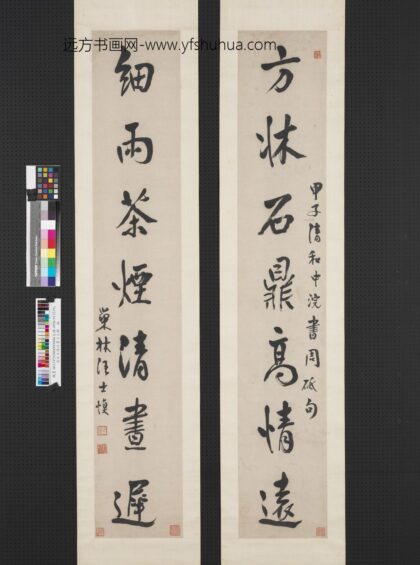 远方书画网-www.yfshuhua.com
甲子清和中浣書周砥句
方牀石鼎高情遠
細雨茶煙清晝遲
巢林汪士慎